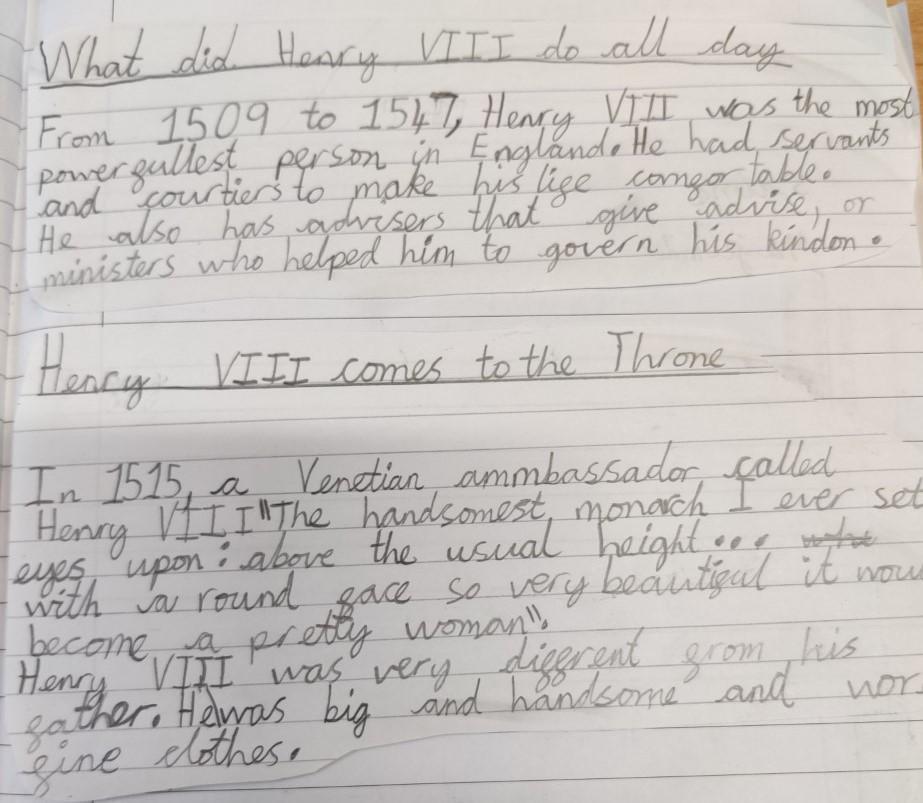 What did Henry VIII do all day
From 1509 to 1547, Henry VIII was the most
powerfullest person in England. He had servants
and courtiers to make his life comfortable.
He also has advisers that give advise, or
ministers who helped him to govern his kindon.
Henry VIII comes to the Throne
In 1515, a Venetian ammbassador called
Henry VIII "The handsomest monarch I ever set
eyes upon: above the usual height...
with a round face so very beautiful it wou
become a pretty woman".
Henry VIII was very diffrent from his
father. He was big and handsome and wor
fine clothes.